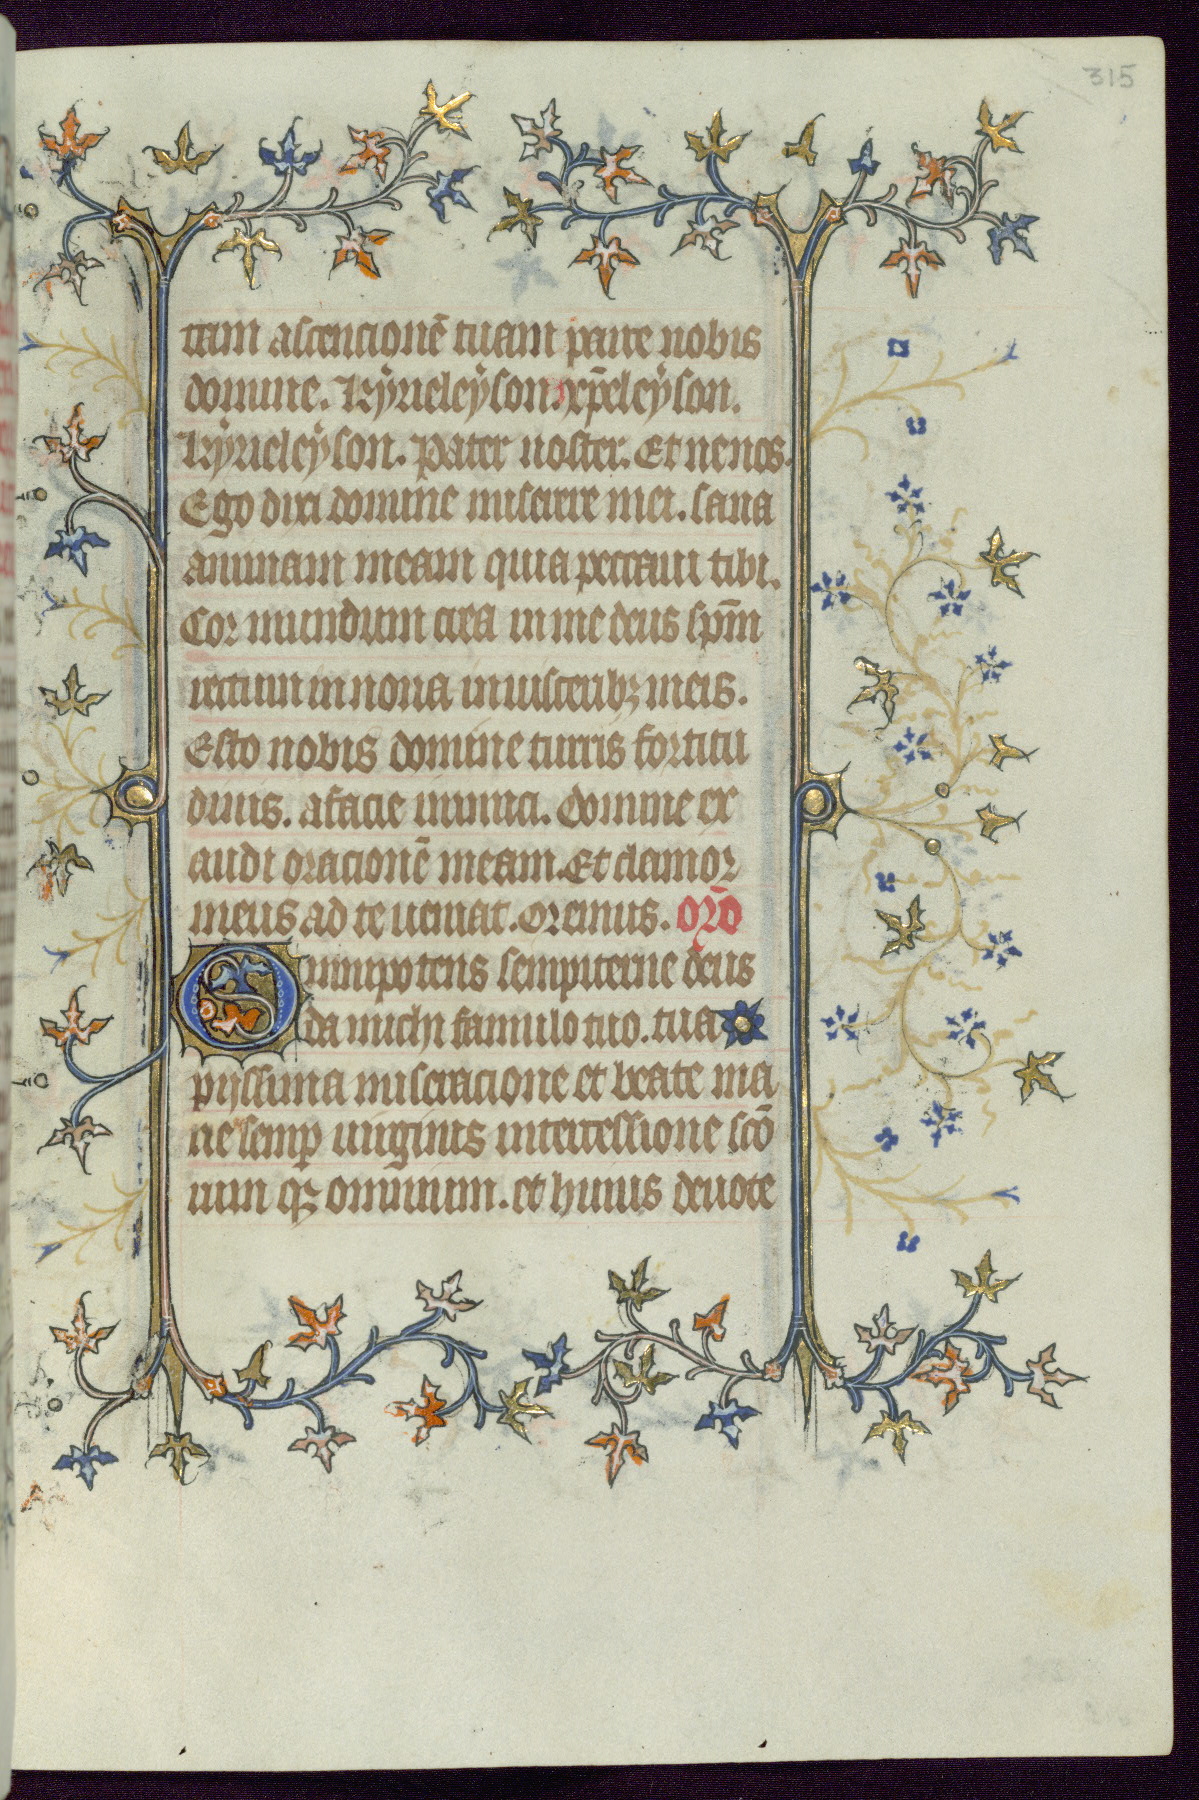 315
tam ascencionē tuam parce nobis
domine. kyrieleyson. xp̄eleyson.
kyrieleyson. Pater noster. Et ne nos.
Ego dixi domine miserere mei. sana
animam meam quia peccaui tibi.
Cor mundum crea in me deus sp̄m
rectum innoua in uisceribꝫ meis.
Esto nobis domine turris fortitu
dinis. a facie inimici. Domine ex
audi oracionē meam. Et clamor
meus ad te ueniat. Oremus. Or̄o
Omnipotens sempiterne deus
da michi famulo tuo. tua
pijssima miseracione et beate ma
rie semp uirginis intercessione scō
rum qꝫ omnium. et huius deuote